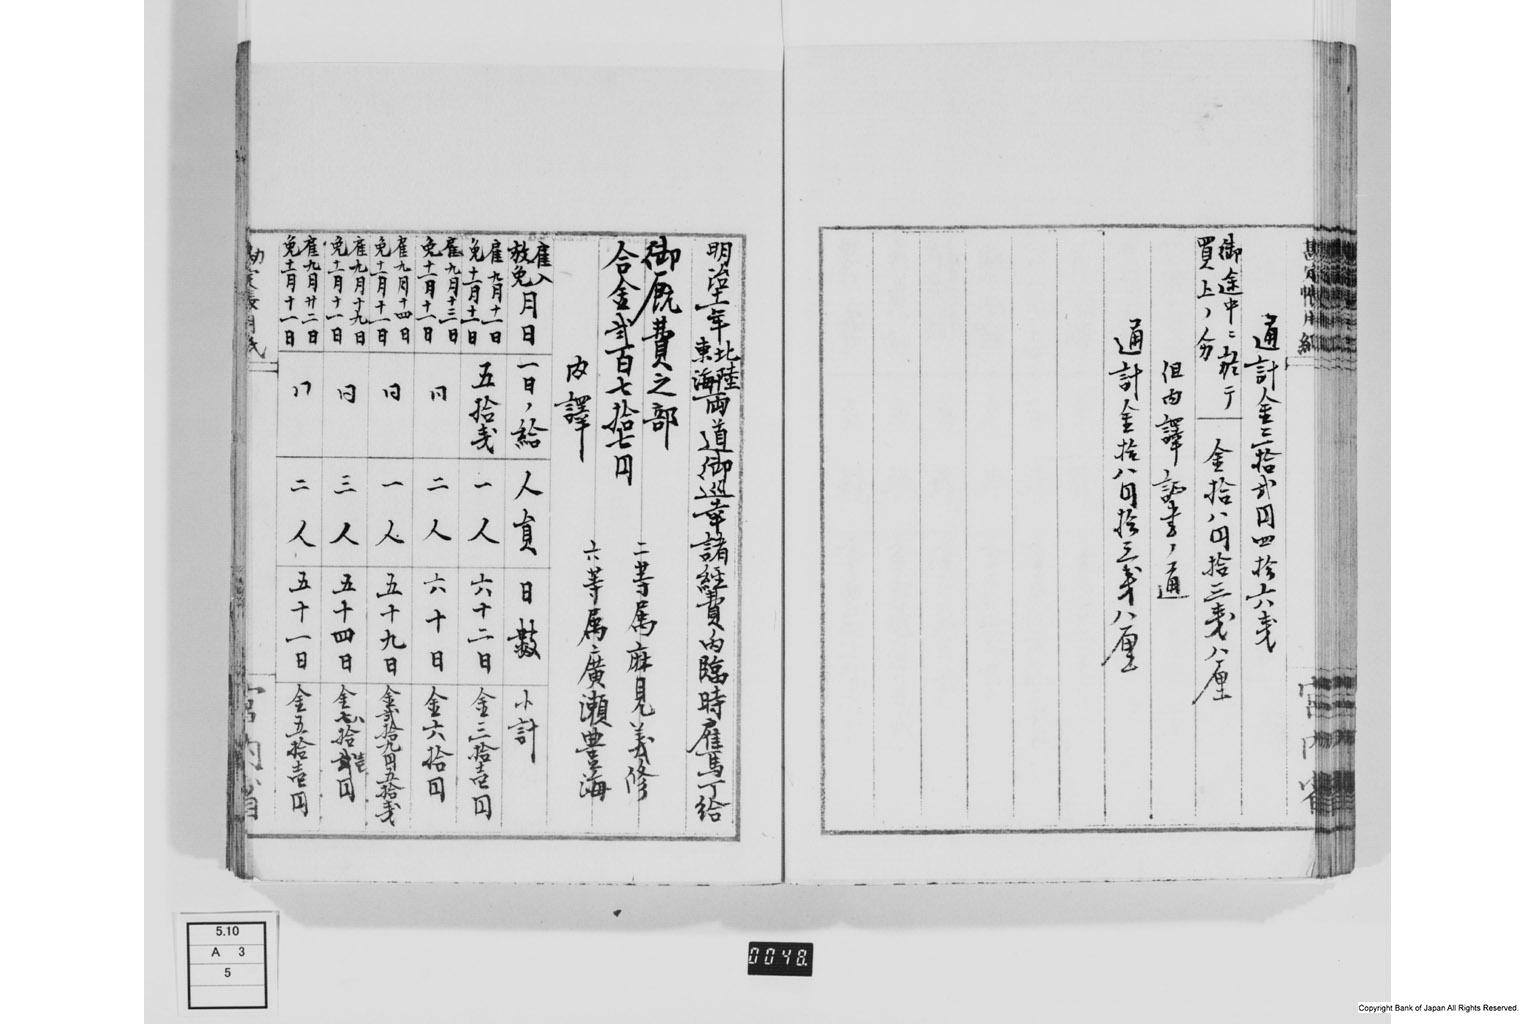 通計金三拾弐円四拾六戔
御途中ニ於テ
買上ノ分
金拾八円拾三戔八厘
但内譯証書ノ通
通計金拾八円拾三戔八厘
宮内省
明治十一年北陸東海両道御巡幸諸經費内臨時雇馬丁給
御厩費之部
二等属麻見義修
合金弐百七拾七円
六等属廣瀬豊海
内譯
雇入放免月日 一日ノ給 人員 日數 小計
雇九月十一日 免十一月十一日 五拾戔 一人 六十二日 金三拾壱円
雇九月十三日 免十一月十一日 同 二人 六十日 金六拾円
雇九月十四日 免十一月十一日 同 一人 五十九日 金弐拾九円五拾戔
雇九月十九日 免十一月十一日 同 三人 五十四日
雇九月廿二日 免十一月十一日 同 二人 五十一日 金五拾壱円
宮内省
5.10
A 3
5
0048.
Copyright Bank of Japan All Rights Reserved.